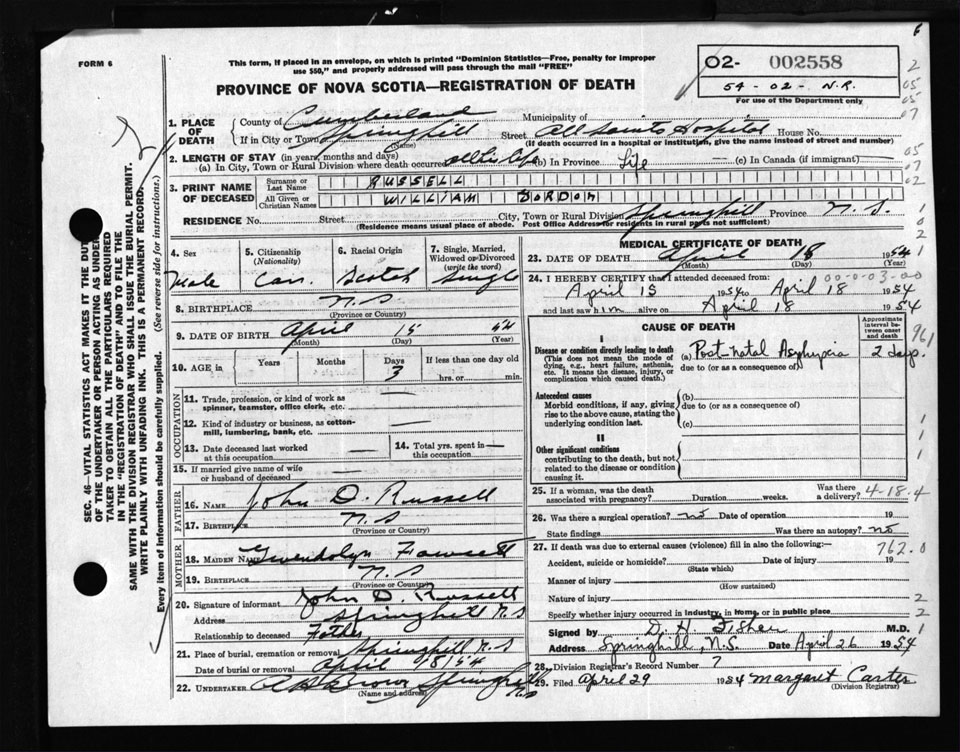 FORM 6
This form, if placed in an envelope, on which is printed "Dominion Statistics—Free, penalty for improper
use $50," and properly addressed will pass through the mail "FREE"
PROVINCE OF NOVA SCOTIA—REGISTRATION OF DEATH
02- 002558
54 - 02 - N.R.
For use of the Department only
1. PLACE OF DEATH
County of Cumberland Municipality of
If in City or Town Springhill Street All Saints Hospital House No.
(Name) (If death occurred in a hospital or institution, give the name instead of street and number)
2. LENGTH OF STAY (in years, months and days)
(a) In City, Town or Rural Division where death occurred (b) In Province Life (c) In Canada (if immigrant)—
3. PRINT NAME OF DECEASED
Surname or Last Name RUSSELL
All Given or Christian Names WILLIAM GORDON
RESIDENCE No. Street City, Town or Rural Division Springhill Province N.S.
(Residence means usual place of abode. Post Office Address for residents in rural parts not sufficient)
4. Sex Male
5. Citizenship (Nationality) Can.
6. Racial Origin Scotch
7. Single, Married, Widowed or Divorced (write the word) Single
8. BIRTHPLACE N.S
(Province or Country)
9. DATE OF BIRTH April 15 54
(Month) (Day) (Year)
10. AGE in Years Months Days 3 If less than one day old hrs. or min.
OCCUPATION
11. Trade, profession, or kind of work as spinner, teamster, office clerk, etc. —
12. Kind of industry or business, as cotton-mill, lumbering, bank, etc. —
13. Date deceased last worked at this occupation —
14. Total yrs. spent in this occupation. —
15. If married give name of wife or husband of deceased —
FATHER
16. NAME John D. Russell
17. BIRTHPLACE N.S
(Province or Country)
MOTHER
18. MAIDEN NAME Gwendolyn Fawsett
19. BIRTHPLACE N.S
(Province or Country)
20. Signature of informant John D. Russell
Address Springhill N.S
Relationship to deceased Father
21. Place of burial, cremation or removal Springhill N.S
Date of burial or removal April
22. UNDERTAKER A Brown Springhill N.S
(Name and address)
MEDICAL CERTIFICATE OF DEATH
23. DATE OF DEATH April 18 1954
(Month) (Day) (Year)
24. I HEREBY CERTIFY that I attended deceased from 00-0-03-00
April 15 1954 to April 18 1954
and last saw him alive on April 18 1954
CAUSE OF DEATH
Approximate interval between onset and death
I
Disease or condition directly leading to death
(This does not mean the mode of dying, e.g., heart failure, asthenia, etc. It means the disease, injury, or complication which caused death.)
(a) Post-natal Asphyxia 2 days.
due to (or as a consequence of)
961
Antecedent causes
Morbid conditions, if any, giving rise to the above cause, stating the underlying condition last.
(b)
due to (or as a consequence of)
(c)
II
Other significant conditions
contributing to the death, but not related to the disease or condition causing it.
25. If a woman, was the death associated with pregnancy? Duration weeks. Was there a delivery? 4-18-4
26. Was there a surgical operation? no Date of operation 19
State findings Was there an autopsy? no
27. If death was due to external causes (violence) fill in also the following:— 762.0
Accident, suicide or homicide? Date of injury 19
(State which)
Manner of injury
(How sustained)
Nature of injury
Specify whether injury occurred in industry, in home, or in public place
Signed by D. H. Fisher M.D.
Address Springhill, N.S. Date April 26 1954
28. Division Registrar's Record Number 7
29. Filed April 29 1954 Margaret Carter
(Division Registrar)
SEC. 46—VITAL STATISTICS ACT MAKES IT THE DUTY
OF THE UNDERTAKER OR PERSON ACTING AS UNDER-
TAKER TO OBTAIN ALL THE PARTICULARS REQUIRED
IN THE "REGISTRATION OF DEATH" AND TO FILE THE
SAME WITH THE DIVISION REGISTRAR WHO SHALL ISSUE THE BURIAL PERMIT.
WRITE PLAINLY WITH UNFADING INK. THIS IS A PERMANENT RECORD.
Every item of information should be carefully supplied. (See reverse side for instructions.)